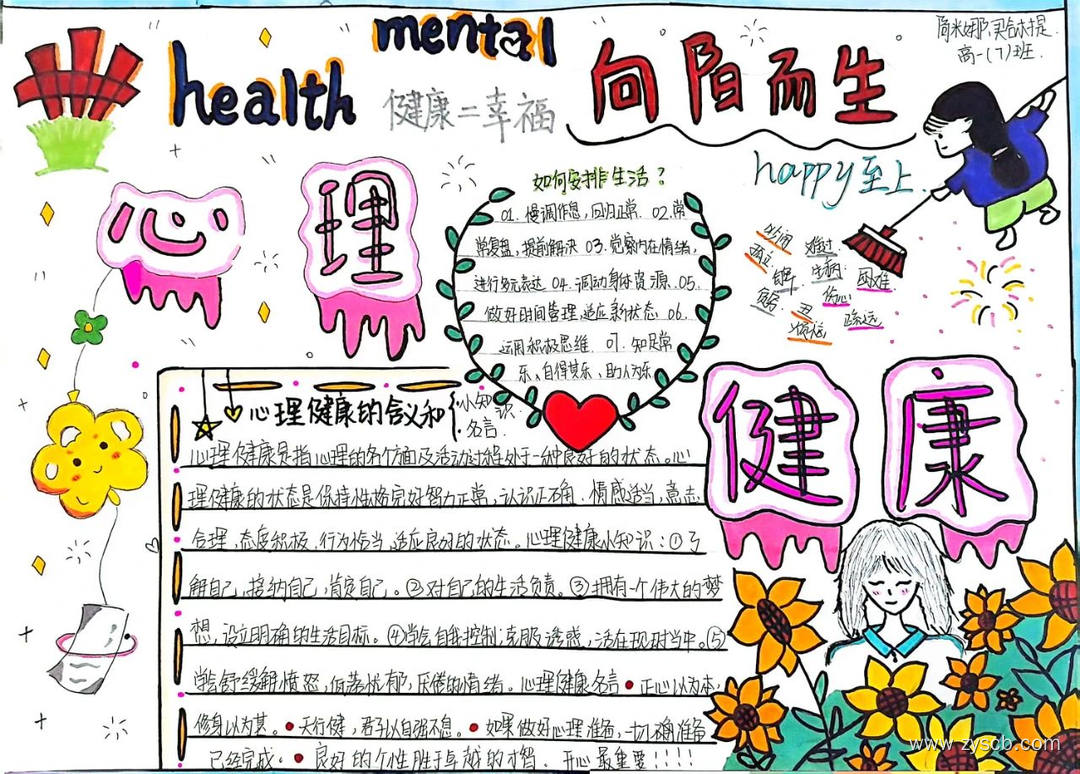 mental
health
健康=幸福
向阳而生
高一(7)班.
happy至上
心理
如何安排生活?
01. 慢调作息,回归正常. 02.常
常复盘,提前解决 03.觉察内在情绪,
进行多元表达 04.调动身体资源.05.
做好时间管理,适应新状态 06.
运用积极思维. 07. 知足常
乐、自得其乐、助人为乐
难过
孤立
生病
困难
自卑
伤心
负
丑
疏远
健康
心理健康的含义和
小知识.
名言.
心理健康是指心理的各个方面及活动过程处于一种良好的状态。心
理健康的状态是保持性格完好智力正常、认识正确、情感适当,意志
合理,态度积极,行为恰当,适应良好的状态。心理健康小知识:①了
解自己,接纳自己,肯定自己。②对自己的生活负责。③拥有一个伟大的梦
想,设立明确的生活目标。④学会自我控制;克服诱惑,活在现时当中。⑤
学会舒缓解愤怒,低落忧郁,厌倦的情绪。心理健康名言•正心以为本,
修身以为基。•天行健,君子以自强不息。•如果做好心理准备,一切准备
已经完成.•良好的个性胜于卓越的才智. 开心最重要!!!!
www.zyscb.com